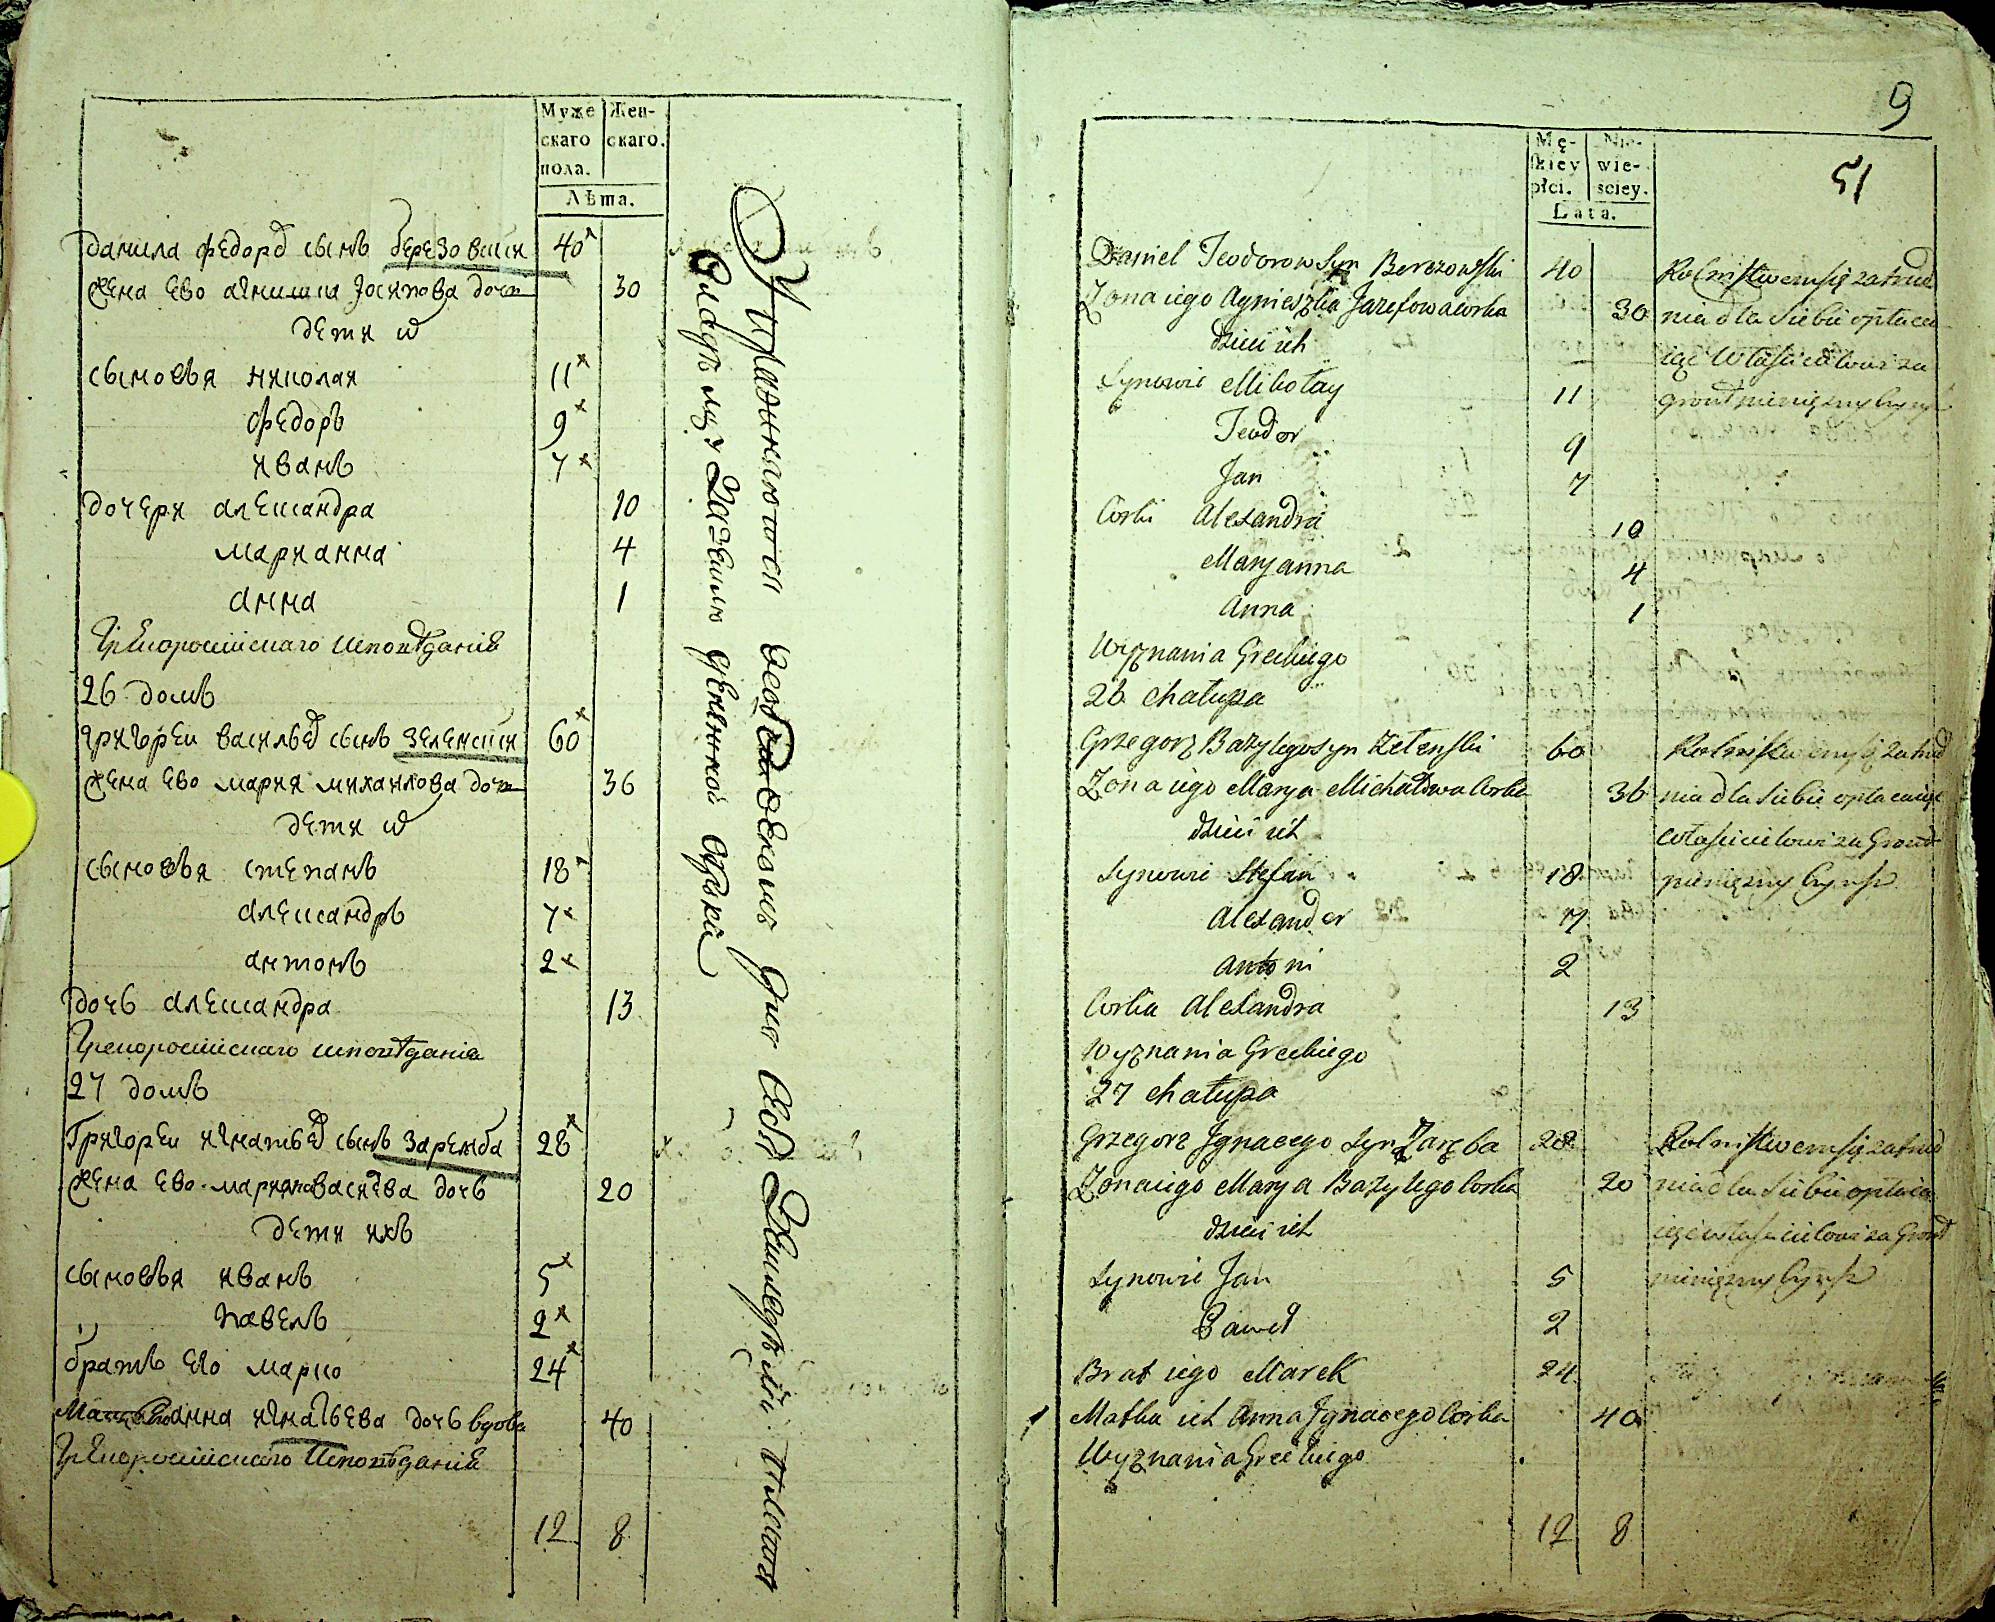 Муже
скаго
пола.
Жен-
скаго.
Лѣта.
данила федоров сынъ березовски 40
жена ево агнишка Іосипова доч 30
дети и
сыновья николаи 11
федоръ 9
иванъ 7
дочери александра 10
марианна 4
анна 1
Грекороссійскаго исповѣданія
26 домъ
григореи васильев сынъ зеленски 60
жена ево мария михаилова доч 36
дети и
сыновья степанъ 18
александръ 7
антонъ 2
дочь александра 13
Грекороссійскаго исповѣданія
27 домъ
Григореи игнатьев сынъ заремба 28
жена ево марианна васильева дочь 20
дети ихъ
сыновья иванъ 5
павелъ 2
братъ его марко 24
анна игнатьева дочь вдова 40
Грекороссійскаго исповѣданія
12 8
Упражняются
9
51
Mę-
skiey
płci.
Nie-
wie-
sciey.
Lata.
Daniel Teodorow Syn Berezowski 40 Rolnistwem się zatrud
Zona iego Agnieszka Jozefowa Corka 30 nia dla siebie opłaca
dzieci ich iąc Właścicielowi za
Synowie Mikołay 11 gront pieniężny Czynsz
Teodor 9
Jan 7
Corki Alexandra 10
Maryanna 4
Anna 1
Wyznania Greckiego
26 chałupa
Grzegorz Bazylego syn Zelenski 60 Rolnistwem się zatrud
Zona iego Marya Michałowa Corka 36 nia dla siebie opłacaiąc
dzieci ich właścicielowi za Gront
Synowie Stefan 18 pieniężny Czynsz
Alexander 7
Antoni 2
Corka Alexandra 13
Wyznania Greckiego
27 chałupa
Grzegorz Jgnacego Syn Zaręba 28 Rolnistwem się zatrud
Zona iego Marya Bazylego Corka 20 nia dla siebie opłaca
dzieci ich iąc właścicielowi za Gront
Synowie Jan 5 pieniężny Czynsz
Paweł 2
Brat iego Marek 24
Matka ich Anna Jgnacego Corka 40
Wyznania Greckiego
12 8